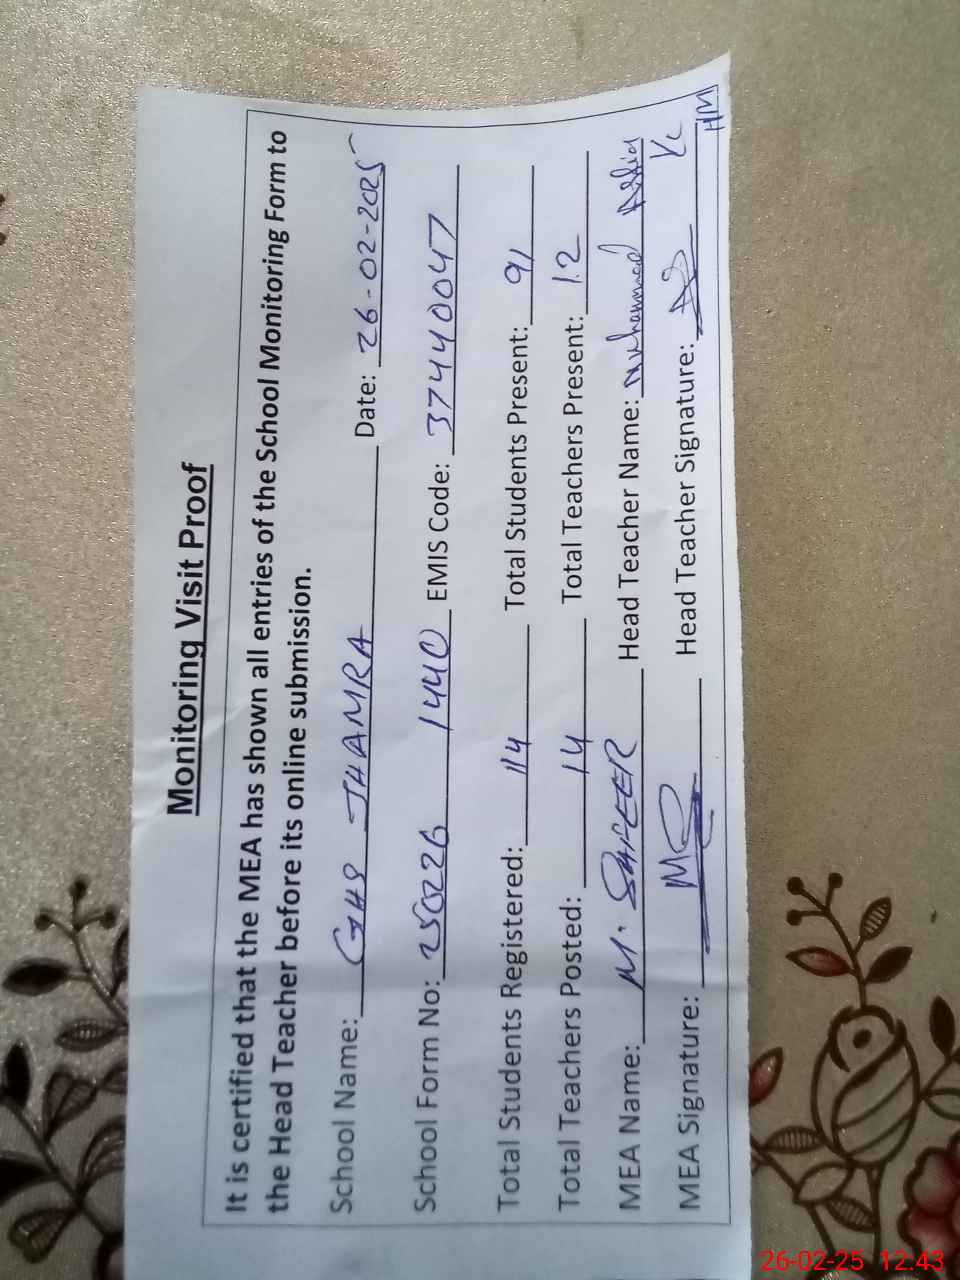 Monitoring Visit Proof
It is certified that the MEA has shown all entries of the School Monitoring Form to
the Head Teacher before its online submission.
School Name: GHS JHAMRA Date: 26-02-2025
School Form No: 250226 1440 EMIS Code: 37440047
Total Students Registered: 114 Total Students Present: 91
Total Teachers Posted: 14 Total Teachers Present: 12
MEA Name: M. SAFEER Head Teacher Name: Muhammad
MEA Signature: Head Teacher Signature:
HM
26-02-25 12:43